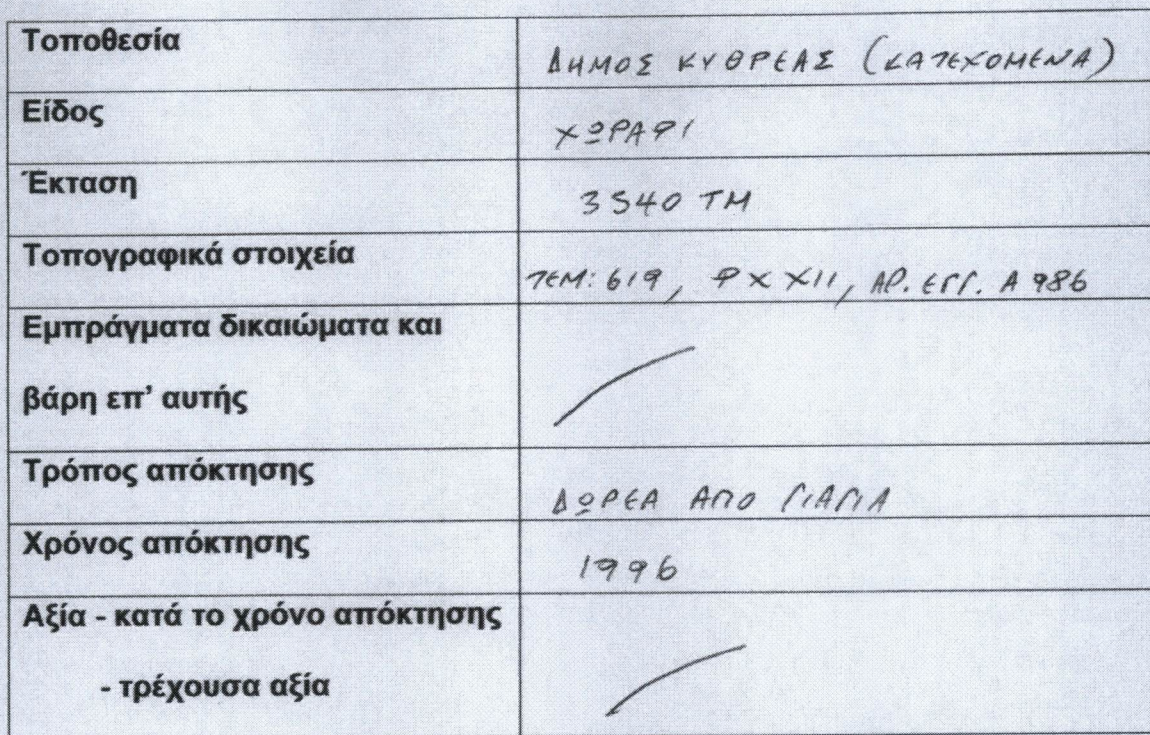 Τοποθεσία
ΔΗΜΟΣ ΚΥΘΡΕΑΣ (ΚΑΤΕΧΟΜΕΝΑ)
Είδος
ΧΩΡΑΦΙ
Έκταση
3540 ΤΜ
Τοπογραφικά στοιχεία
ΤΕΜ: 619, ΦΧ ΧΙΙ, ΑΡ. ΕΓΓ. Α 986
Εμπράγματα δικαιώματα και
βάρη επ' αυτής
Τρόπος απόκτησης
ΔΩΡΕΑ ΑΠΟ ΓΙΑΓΙΑ
Χρόνος απόκτησης
1996
Αξία - κατά το χρόνο απόκτησης
- τρέχουσα αξία